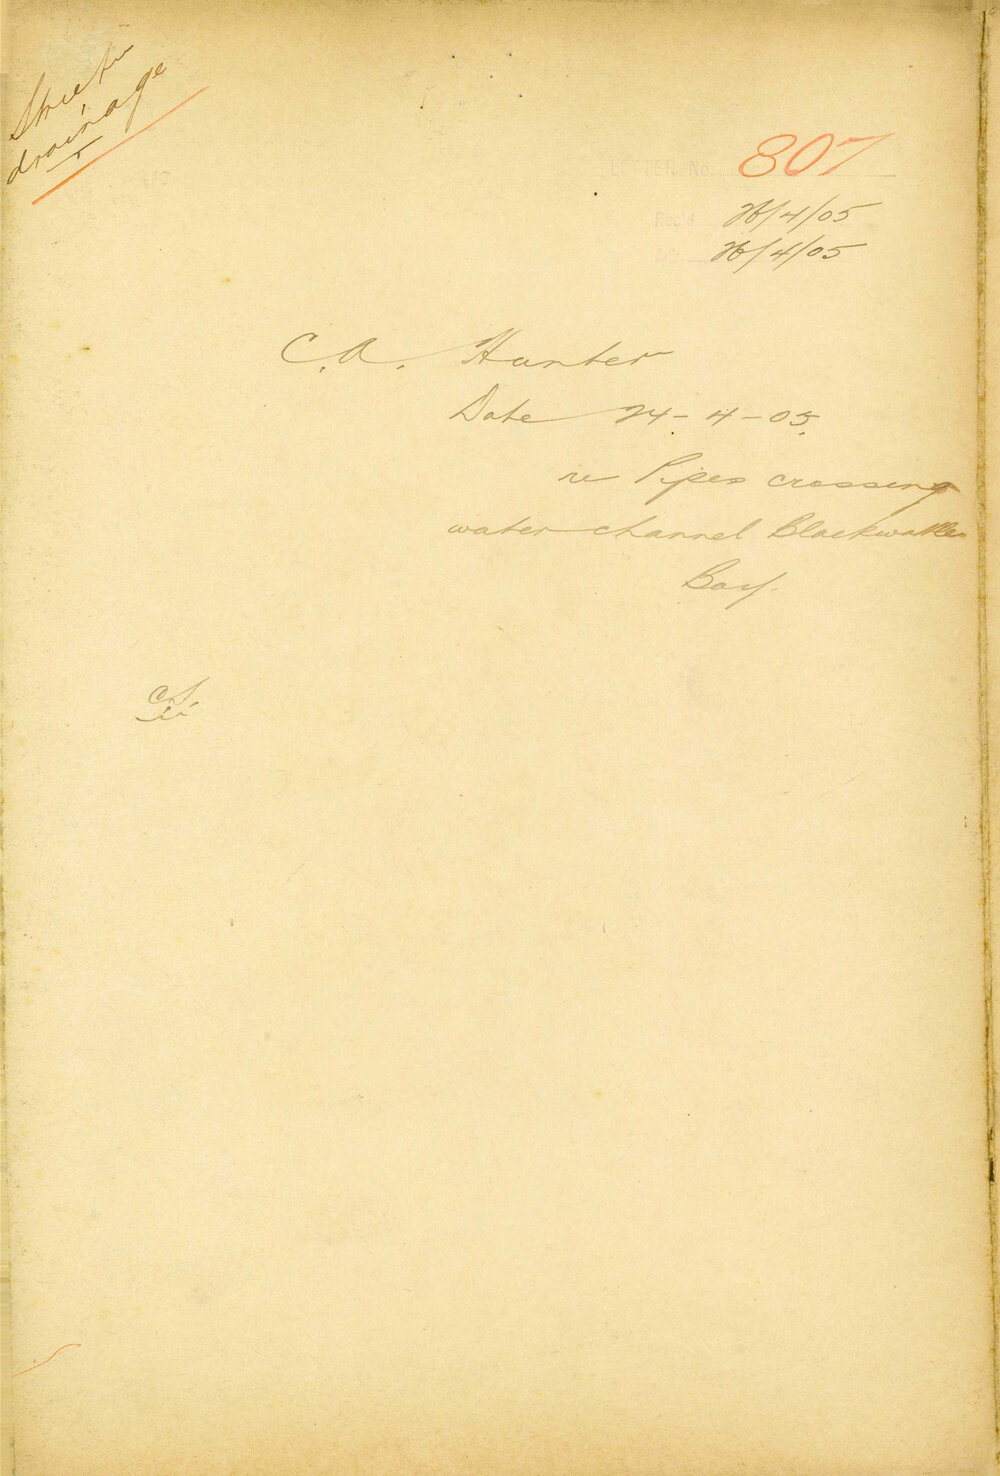 Streets
drainage
LETTER No. 807
Rec'd 26/4/05
26/4/05
C. A. Hunter
Date 24-4-05.
re Pipes crossing
water channel Blackwattle
Bay.